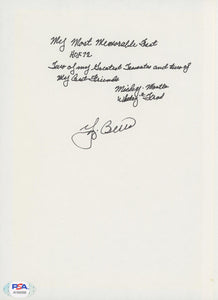 My Most Memorable Feat
HOF 72
Two of my Greatest Favorites and two of
My Best Friends
Mickey Mantle
Whitey Ford
Y. Berra
PSA